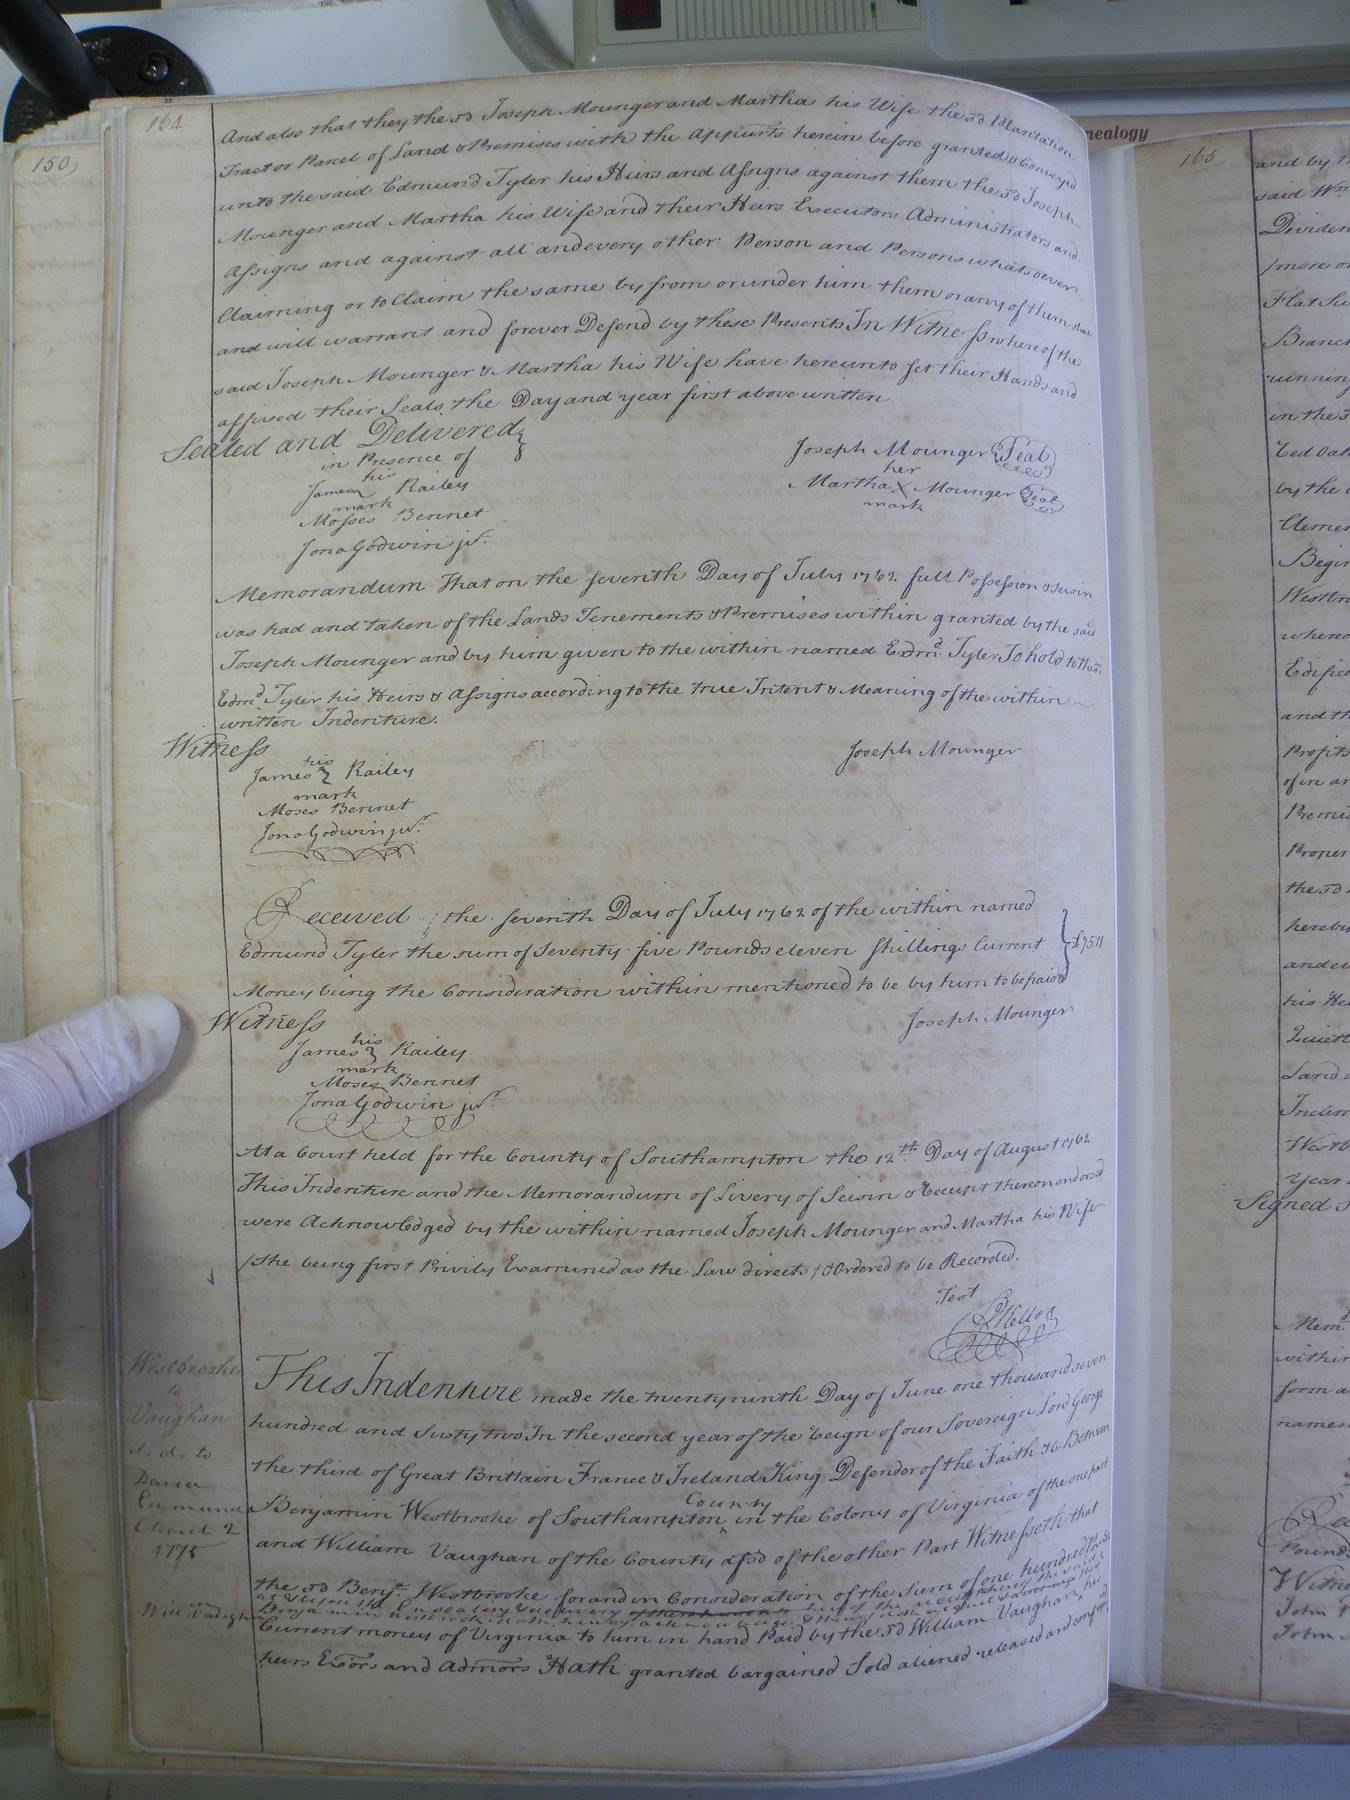 150
164
And also that they the sd Joseph Mounger and Martha his Wife the sd Plantation
Tract or Parcel of Land & Premises with the Appurts herein before granted & Conveyed
unto the said Edmund Tyler his Heirs and Assigns against them the sd Joseph
Mounger and Martha his Wife and their Heirs Executors Administrators and
Assigns and against all and every other Person and Persons whatsoever
Claiming or to Claim the same by from or under him them or any of them shall
and will warrant and forever Defend by these Presents In Witness whereof the
said Joseph Mounger & Martha his Wife have hereunto set their Hands and
affixed their Seals the Day and year first above written.
Sealed and Delivered
in Presence of
his
James Railey
mark
Mosses Bennet
Jona Godwin jur.
Joseph Mounger Seal
her
Martha X Mounger Seal
mark
Memorandum That on the seventh Day of July 1762 full Possession & Seisin
was had and taken of the Lands Tenements & Premises within granted by the said
Joseph Mounger and by him given to the within named Edmd. Tyler To hold to the
Edmd. Tyler his Heirs & Assigns according to the true Intent & Meaning of the within
written Indenture.
Witness
his
James Railey
mark
Moses Bennet
Jona Godwin jur.
Joseph Mounger
Received the seventh Day of July 1762 of the within named
Edmund Tyler the sum of Seventy five Pounds eleven shillings Current
Money being the Consideration within mentioned to be by him to be paid
£75 11
Witness
his
James Railey
mark
Moses Bennet
Jona Godwin jur.
Joseph Mounger
At a Court held for the County of Southampton the 12th Day of August 1762
This Indenture and the Memorandum of Livery of Seisin & Receipt thereon endorsed
were Acknowledged by the within named Joseph Mounger and Martha his Wife
/She being first Privily Examined as the Law directs/ & Ordered to be Recorded.
Test
R Kello
Westbrooke
to
Vaughan
d. d. to
1775
Will Vaughan
This Indenture made the twenty ninth Day of June one thousand seven
hundred and Sixty two In the second year of the Reign of our Sovereign Lord George
the third of Great Brittain France & Ireland King Defender of the Faith &c. Between
County
Benjamin Westbrooke of Southampton in the Colony of Virginia of the one part
and William Vaughan of the County afsd of the other Part Witnesseth that
the sd Benja. Westbrooke for and in Consideration of the sum of one hundred
Benjamin Westbrook doth hereby acknowledge
Current money of Virginia to him in hand Paid by the sd William Vaughan his
heirs Exors and Admors Hath granted bargained Sold aliened released and
165
nealogy
and by
said Wm
Dividen
/more or
Flat
Branch
running
in the
Red Oak
by the
Clemen
Begin
Westbr
where
Edific
and th
Profits
of in an
Premis
Proper
the sd
hereby
and ev
his He
Quiet
Land
Inden
Westb
Year
Signed
Mem.
within
form a
names
Re
Pound
Witne
John
John